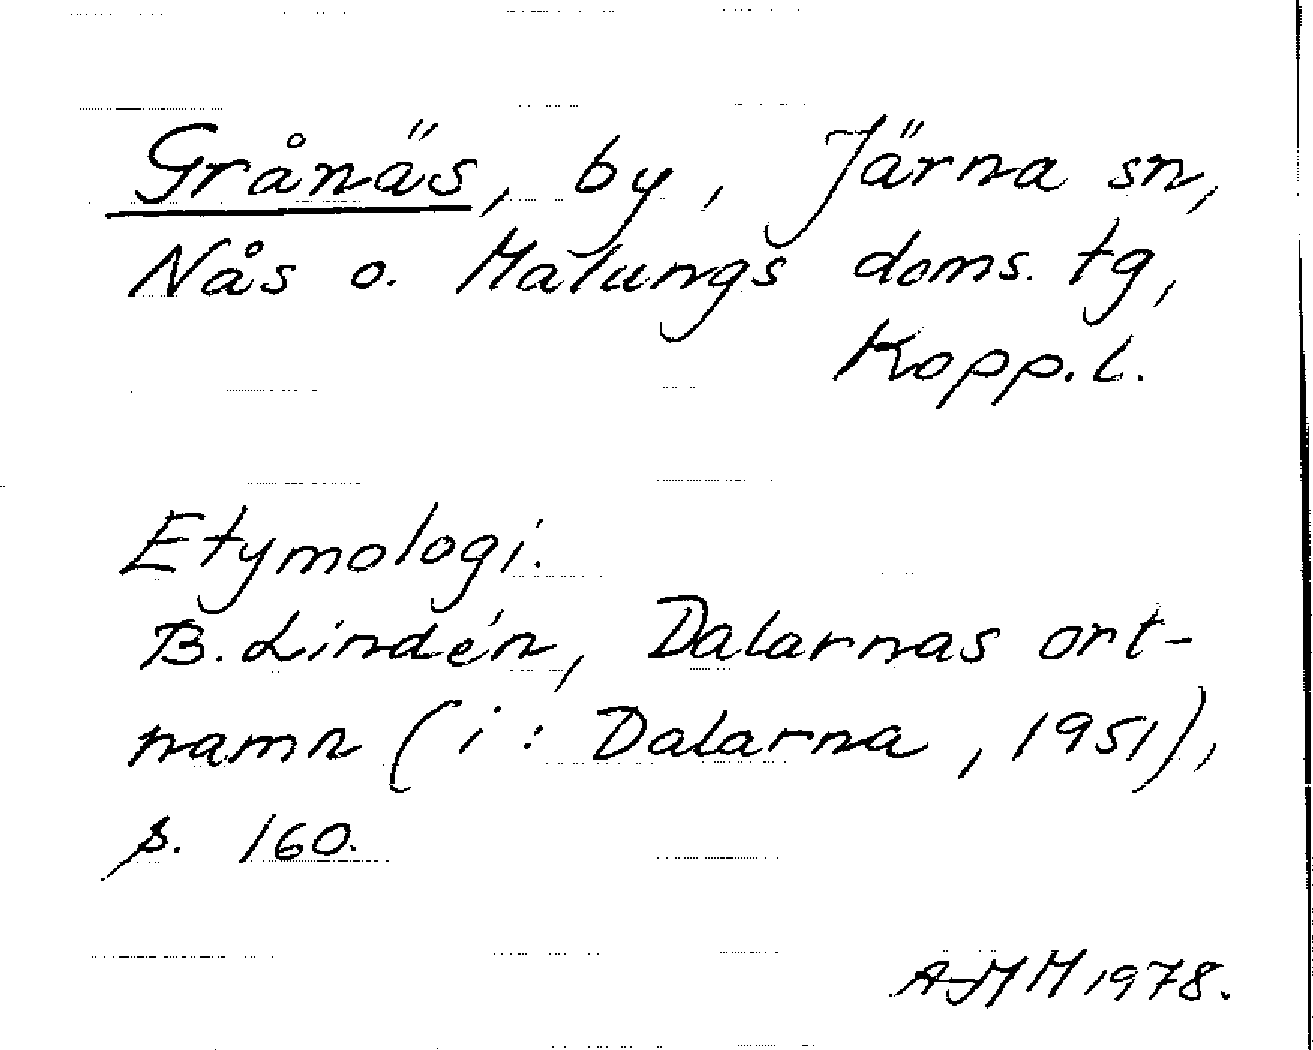 Grånäs, by, Järna sn,
Nås o. Malungs doms. tg,
Kopp. l.
Etymologi.
B. Lindén, Dalarnas ort-
namn (i: Dalarna, 1951),
s. 160.
AJMM 1978.